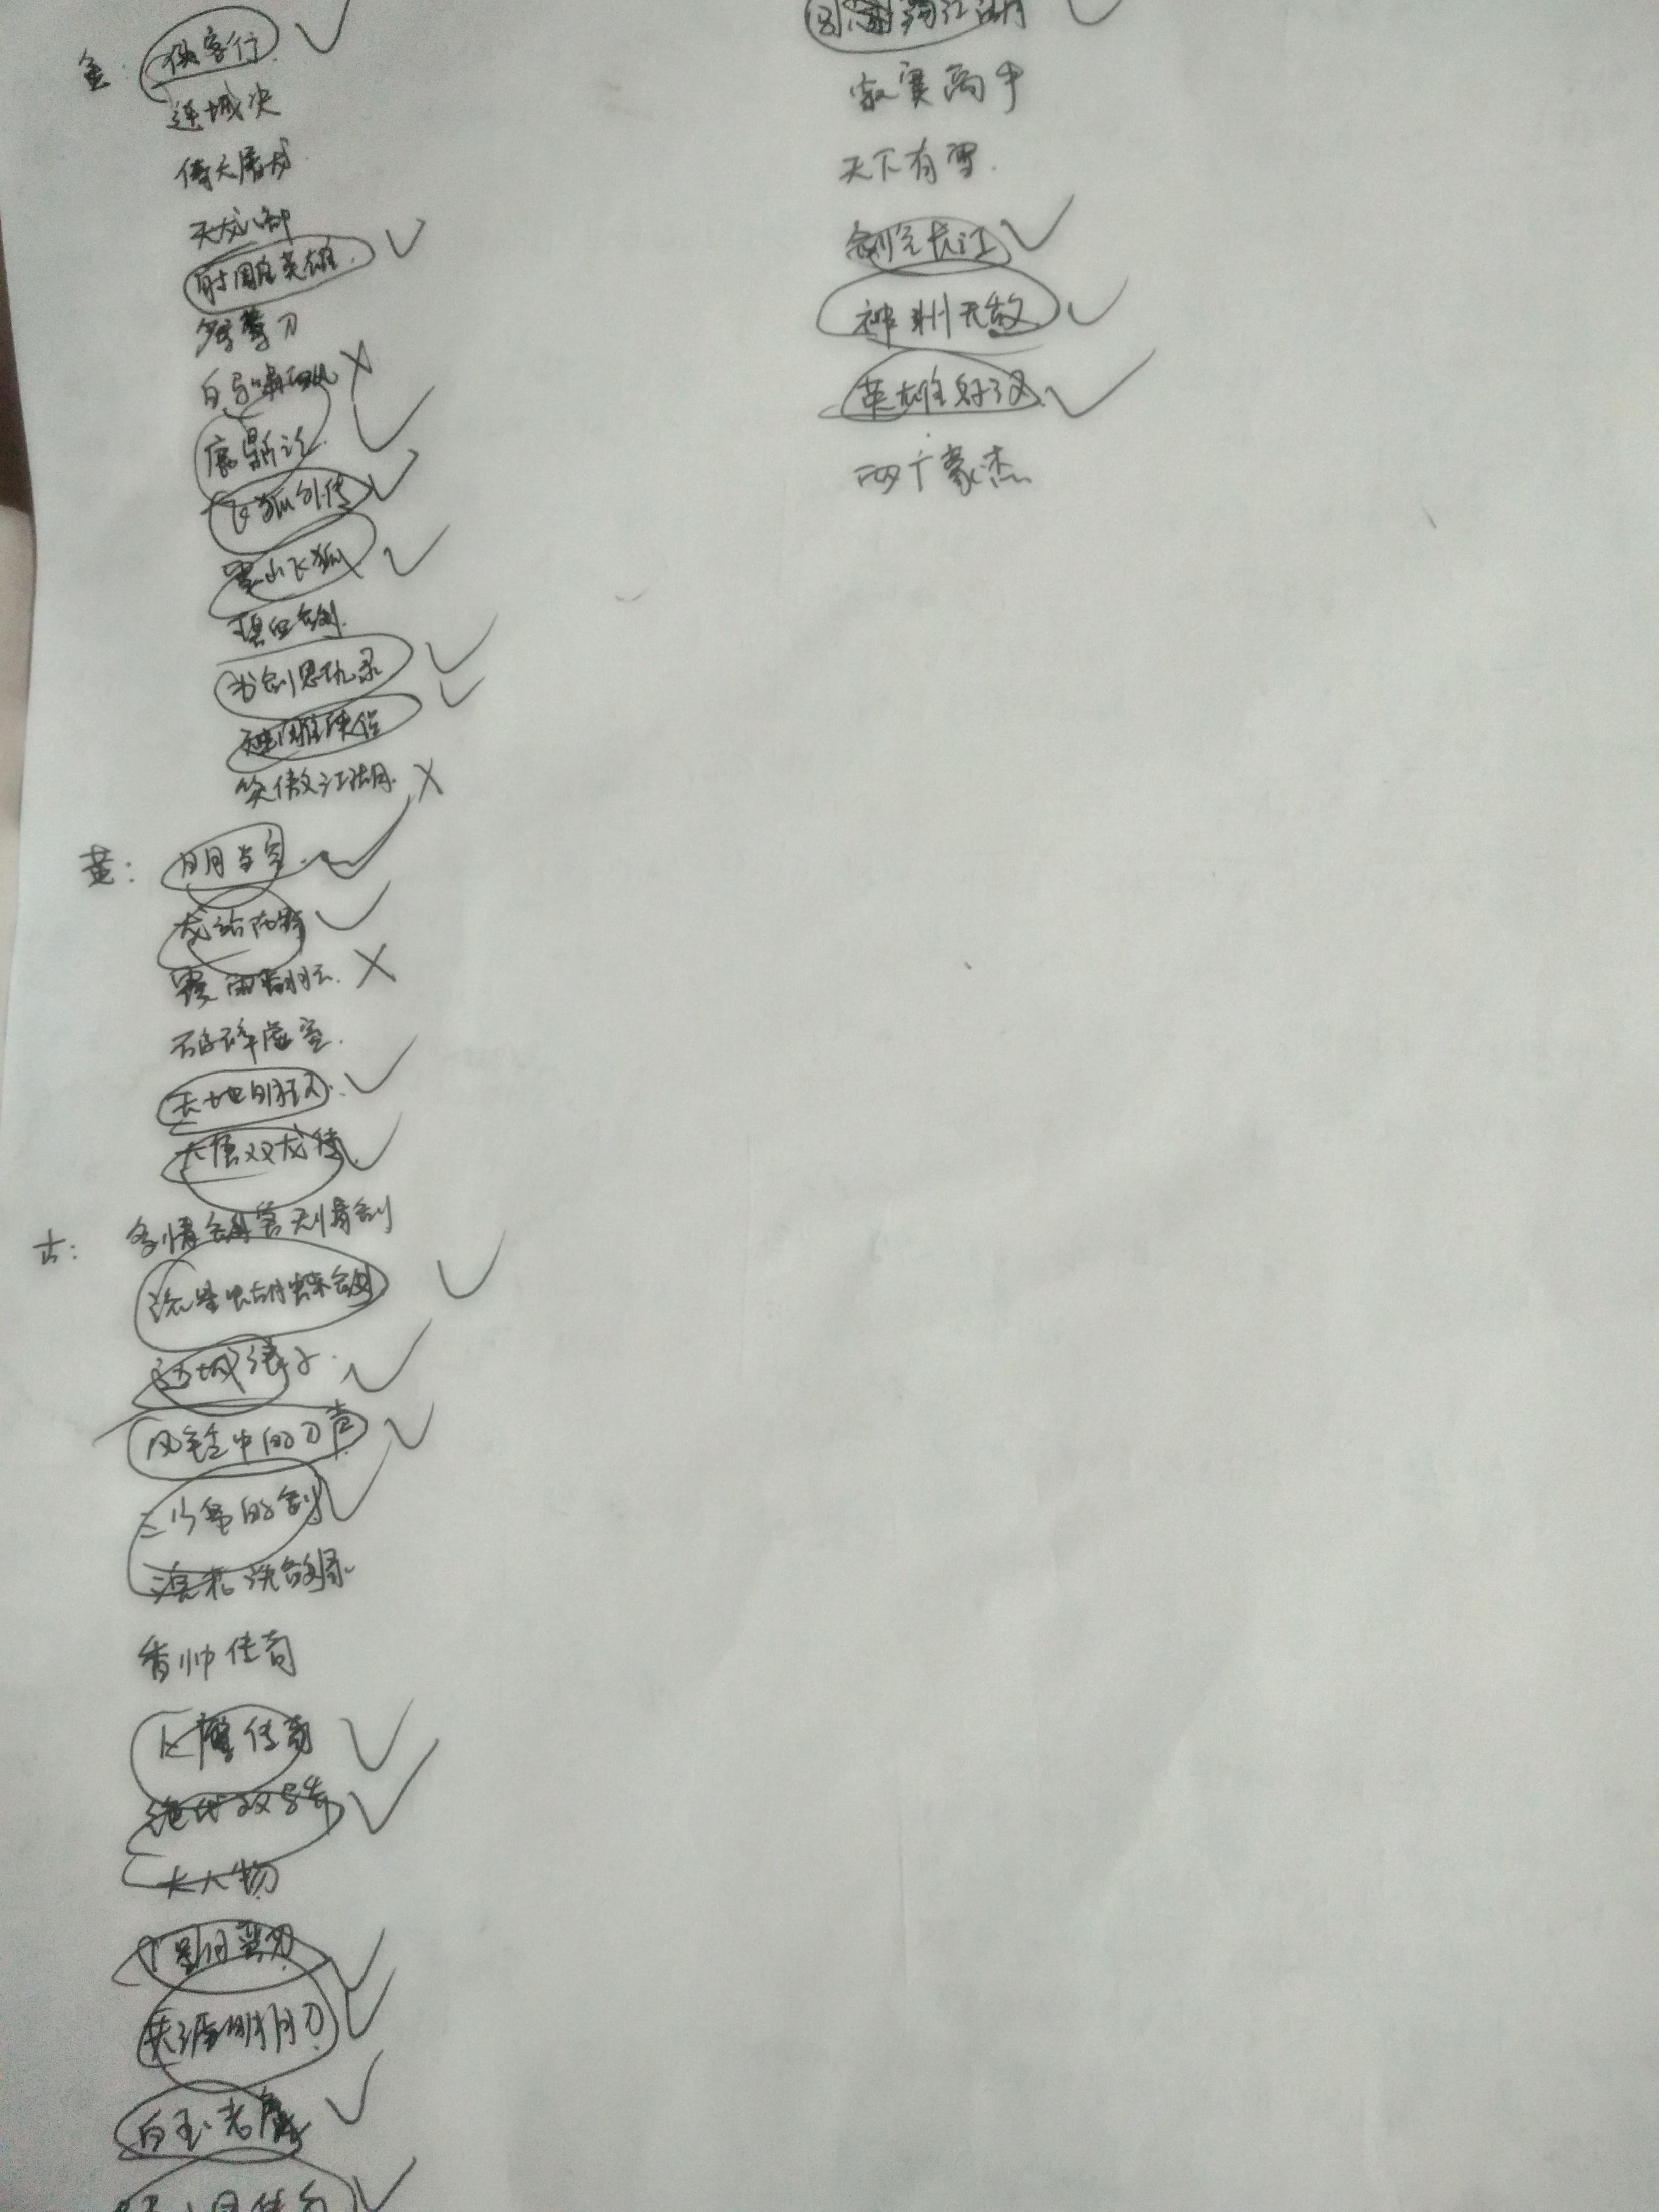 金: 侠客行
连城决
倚天屠龙
天龙八部
射雕英雄.
鸳鸯刀
白马啸西风
鹿鼎记.
飞狐外传
雪山飞狐
碧血剑.
书剑恩仇录
神雕侠侣
笑傲江湖.
黄: 日月当空.
龙战在野
霞雨翻云.
破碎虚空.
天地明环.
大唐双龙传
古: 多情剑客无情剑
流星蝴蝶剑.
边城浪子.
风铃中的刀声
三少爷的剑
浣花洗剑录
香帅传奇
飞鹰传奇
绝代双骄
大人物
圆月弯刀
天涯明月刀
白玉老虎
江湖
寂寞高手
天下有雪.
剑气长江
神州无敌
英雄好汉
两个豪杰